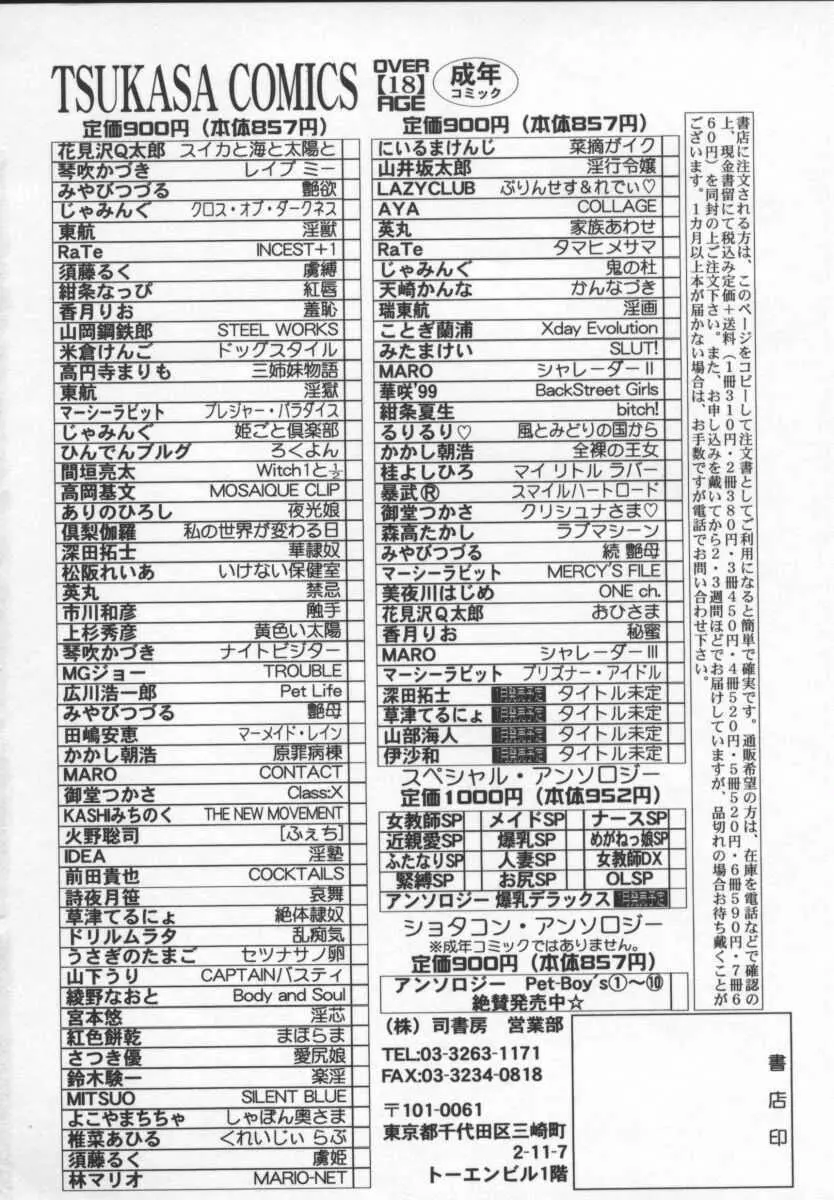 TSUKASA COMICS
OVER
【18】
AGE
成年
コミック
定価900円 (本体857円)
花見沢Q太郎 スイカと海と太陽と
琴吹かづき レイプ ミー
みやびつづる 艶欲
じゃみんぐ クロス・オブ・ダークネス
東航 淫獣
RaTe INCEST+1
須藤るく 虜縛
紺条なっぴ 紅唇
香月りお 羞恥
山岡鋼鉄郎 STEEL WORKS
米倉けんご ドッグスタイル
高円寺まりも 三姉妹物語
東航 淫獄
マーシーラビット プレジャー・パラダイス
じゃみんぐ 姫ごと倶楽部
ひんでんブルグ ろくよん
間垣亮太 Witch1と½
高岡基文 MOSAIQUE CLIP
ありのひろし 夜光娘
倶梨伽羅 私の世界が変わる日
深田拓士 華隷奴
松阪れいあ いけない保健室
英丸 禁忌
市川和彦 触手
上杉秀彦 黄色い太陽
琴吹かづき ナイトビジター
MGジョー TROUBLE
広川浩一郎 Pet Life
みやびつづる 艶母
田嶋安恵 マーメイド・レイン
かかし朝浩 原罪病棟
MARO CONTACT
御堂つかさ Class:X
KASHIみちのく THE NEW MOVEMENT
火野聡司 [ふぇち]
IDEA 淫塾
前田貴也 COCKTAILS
詩夜月笹 哀舞
草津てるにょ 絶体隷奴
ドリルムラタ 乱痴気
うさぎのたまご セツナサノ卵
山下うり CAPTAINバスティ
綾野なおと Body and Soul
宮本悠 淫芯
紅色餅乾 まほらま
さつき優 愛尻娘
鈴木験一 楽淫
MITSUO SILENT BLUE
よこやまちちゃ しゃぼん奥さま
椎菜あひる くれいじぃ らぶ
須藤るく 虜姫
林マリオ MARIO-NET
定価900円 (本体857円)
にいるまけんじ 菜摘がイク
山井坂太郎 淫行令嬢
LAZYCLUB ぷりんせす&れでぃ♡
AYA COLLAGE
英丸 家族あわせ
RaTe タマヒメサマ
じゃみんぐ 鬼の杜
天崎かんな かんなづき
瑞東航 淫画
ことぎ蘭浦 Xday Evolution
みたまけい SLUT!
MARO シャレーダーⅡ
華咲'99 BackStreet Girls
紺条夏生 bitch!
るりるり♡ 風とみどりの国から
かかし朝浩 全裸の王女
桂よしひろ マイ リトル ラバー
暴武Ⓡ スマイルハートロード
御堂つかさ クリシュナさま♡
森高たかし ラブマシーン
みやびつづる 続 艶母
マーシーラビット MERCY'S FILE
美夜川はじめ ONE ch.
花見沢Q太郎 おひさま
香月りお 秘蜜
MARO シャレーダーⅢ
マーシーラビット プリズナー・アイドル
深田拓士 1月発売予定 タイトル未定
草津てるにょ 1月発売予定 タイトル未定
山部海人 1月発売予定 タイトル未定
伊沙和 1月発売予定 タイトル未定
スペシャル・アンソロジー
定価1000円 (本体952円)
女教師SP メイドSP ナースSP
近親愛SP 爆乳SP めがねっ娘SP
ふたなりSP 人妻SP 女教師DX
緊縛SP お尻SP OLSP
アンソロジー 爆乳デラックス 1月発売予定
ショタコン・アンソロジー
※成年コミックではありません。
定価900円 (本体857円)
アンソロジー Pet-Boy's①〜⑩
絶賛発売中☆
(株) 司書房 営業部
TEL:03-3263-1171
FAX:03-3234-0818
〒101-0061
東京都千代田区三崎町
2-11-7
トーエンビル1階
書店印
書店に注文される方は、このページをコピーして注文書としてご利用になると簡単で確実です。通販希望の方は、在庫を電話などで確認の
上、現金書留にて税込み定価+送料(1冊310円・2冊380円・3冊450円・4冊520円・5冊520円・6冊590円・7冊6
60円)を同封の上ご注文下さい。また、お申し込みを戴いてから2・3週間ほどでお届けしていますが、品切れの場合お待ち戴くことが
ございます。1カ月以上本が届かない場合は、お手数ですが電話でお問い合わせ下さい。